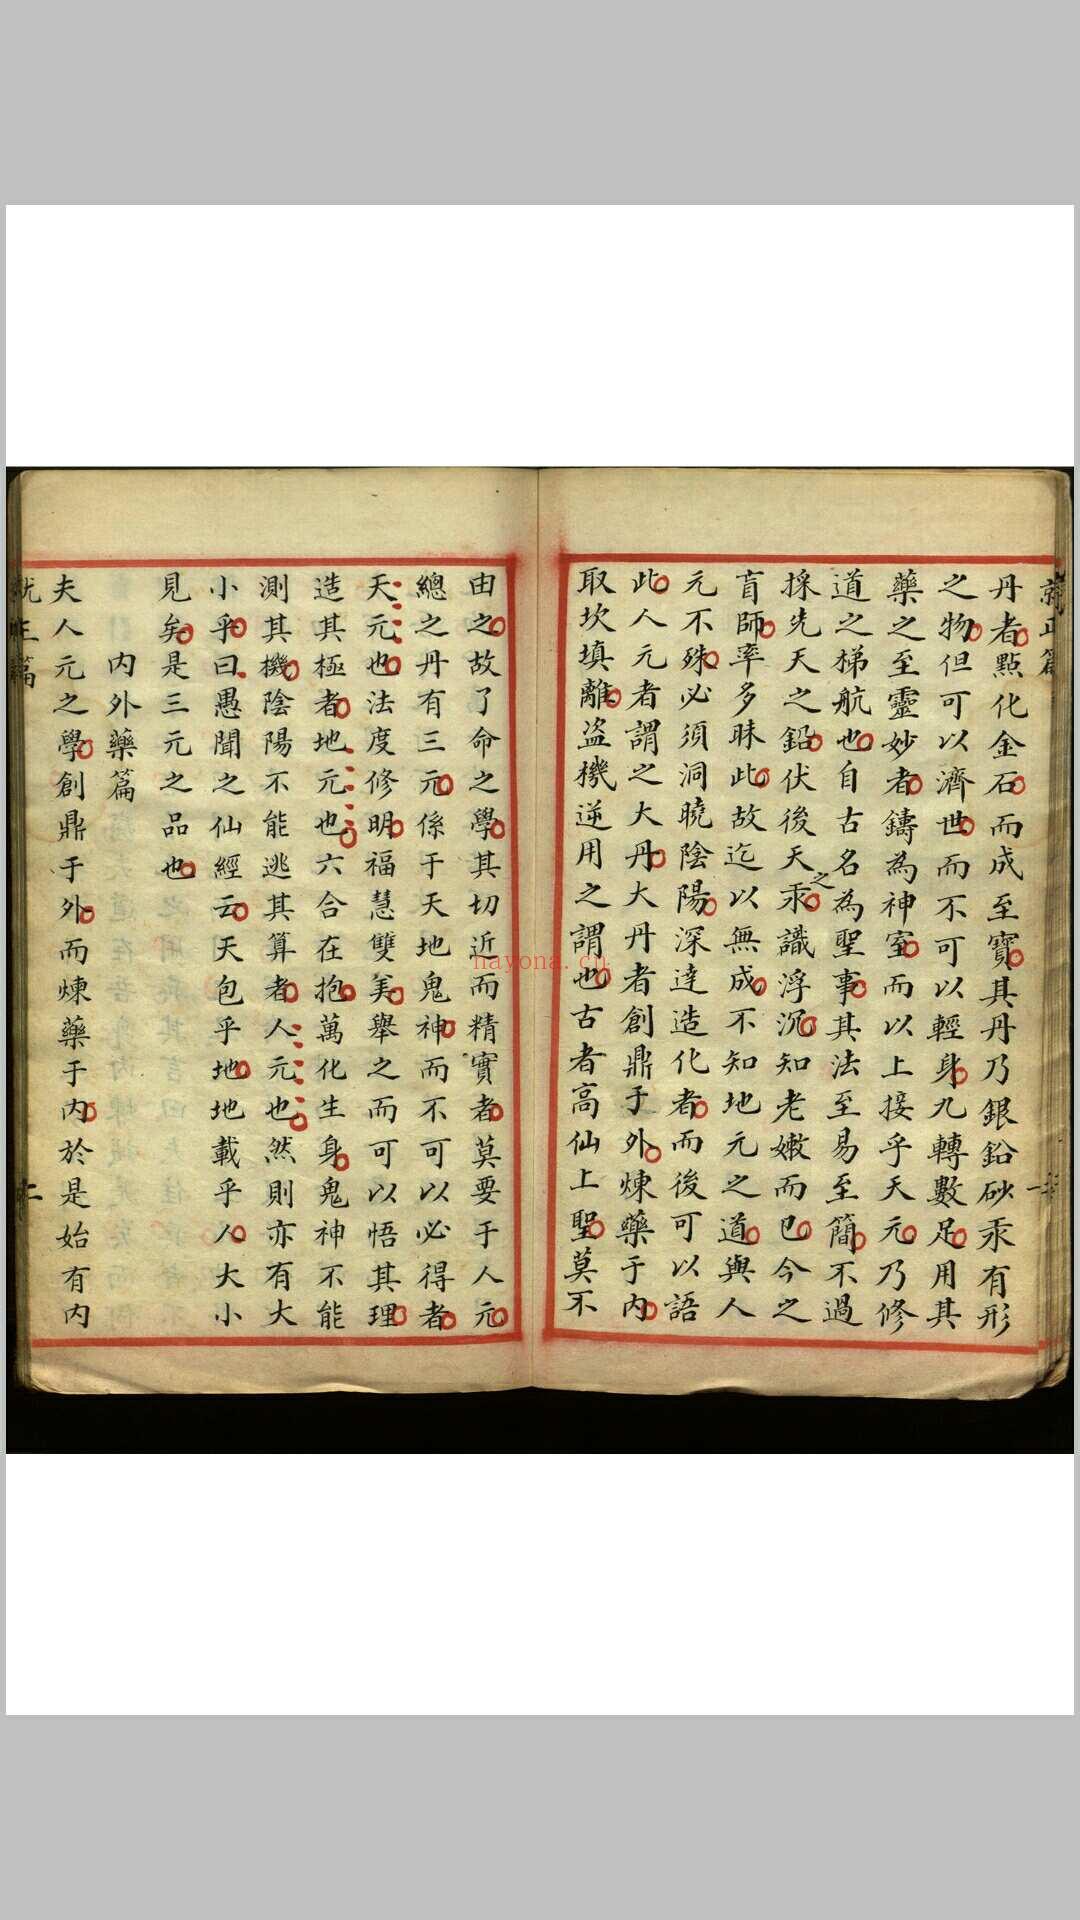 就正篇
丹者點化金石而成至寶其丹乃銀鉛砂汞有形
之物但可以濟世而不可以輕身九轉數足用其
藥之至靈妙者鑄為神室而以上接乎天元乃修
道之梯航也自古名為聖事其法至易至簡不過
採先天之鉛伏後天之汞識浮沉知老嫩而已今之
盲師率多昧此故迄以無成不知地元之道與人
元不殊必須洞曉陰陽深達造化者而後可以語
此人元者謂之大丹大丹者創鼎于外煉藥于內
取坎填離盜機逆用之謂也古者高仙上聖莫不
由之故了命之學其切近而精實者莫要于人元
總之丹有三元係于天地鬼神而不可以必得者
天元也法度修明福慧雙美舉之而可以悟其理
造其極者地元也六合在抱萬化生身鬼神不能
測其機陰陽不能逃其算者人元也然則亦有大
小乎曰愚聞之仙經云天包乎地地載乎人大小
見矣是三元之品也
內外藥篇
夫人元之學創鼎于外而煉藥于內於是始有內
就正篇
nayona.cn